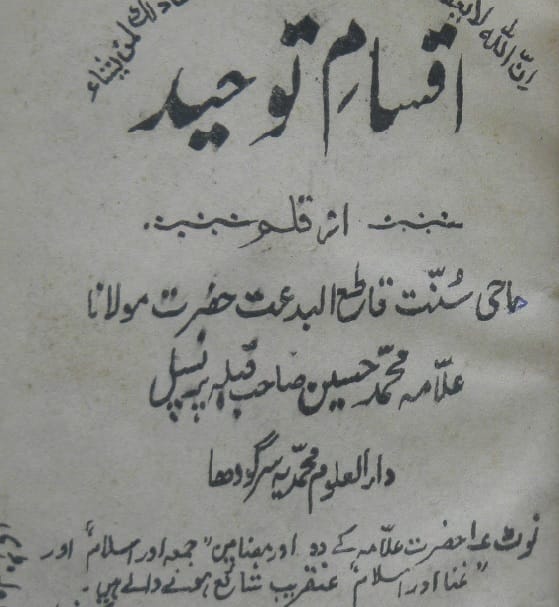 ان اللہ لا یغفر
ذلک لمن یشاء
اقسامِ توحید
از قلم
حامی سُنّت قاطع البدعت حضرت مولانا
علّامہ محمّد حسین صاحب قبلہ پرنسپل
دارالعلوم محمّدیہ سرگودھا
نوٹ ۱ حضرت علّامہ کے دو اور مضامین "جمعہ اور اسلام" اور
"غنا اور اسلام" عنقریب شائع ہونے والے ہیں۔